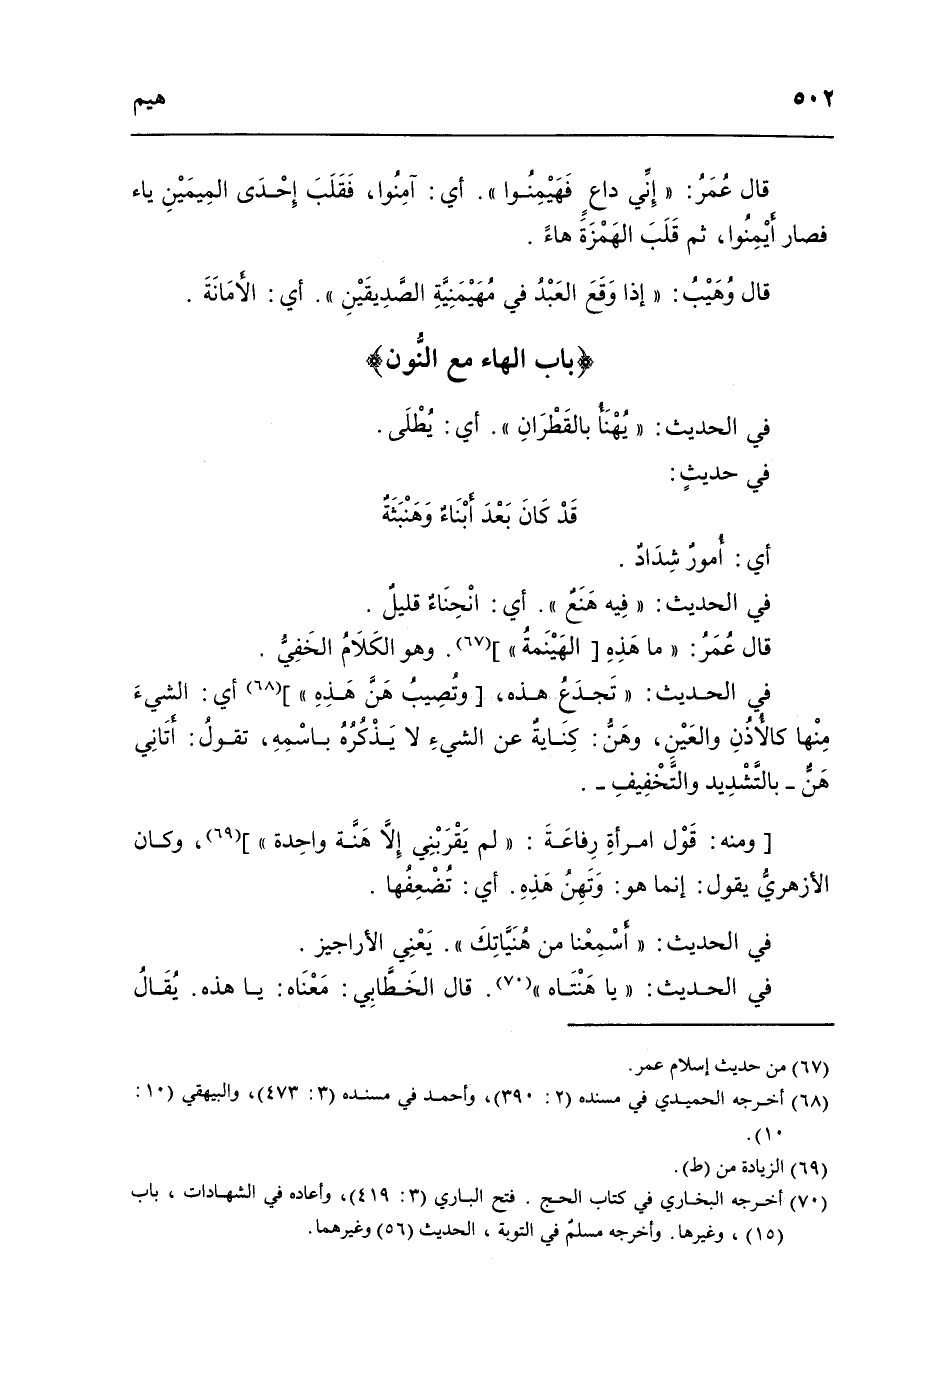 ٥٠٢ هيم
قال عُمَرُ: « إنِّي داعٍ فَهَيْمِنُوا ». أي: آمِنُوا، فَقَلَبَ إحْدَى المِيمَيْنِ ياء
فصار أَيْمِنُوا، ثم قَلَبَ الهَمْزَةَ هاءً .
قال وُهَيْبُ: « إذا وَقَعَ العَبْدُ في مُهَيْمَنِيَّةِ الصَّدِيقَيْنِ ». أي: الأَمَانَةَ .
﴿باب الهاء مع النُّون﴾
في الحديث: « يُهْنَأُ بالقَطْرَانِ ». أي: يُطْلَى.
في حديثٍ:
قَدْ كَانَ بَعْدَ أَبْنَاءٌ وَهَنْبَثَةٌ
أي: أُمورٌ شِدَادٌ .
في الحديث: « فِيه هَنَعٌ ». أي: انْحِنَاءٌ قليلٌ .
قال عُمَرُ: « ما هَذِهِ [ الهَيْنَمةُ » ](٦٧). وهو الكَلَامُ الخَفِيُّ .
في الحديث: « تَجدَعُ هذه، [ وتُصِيبُ هَنَّ هَذِهِ » ](٦٨) أي: الشيءَ
مِنْها كالأُذُنِ والعَيْنِ، وهَنُّ: كِنَايةٌ عن الشيءِ لا يَذْكُرُهُ باسْمِهِ، تقولُ: أَتَانِي
هَنٌّ - بالتَّشْدِيد والتَّخْفِيفِ - .
[ ومنه: قَوْل امرأةِ رِفاعَةَ : « لم يَقْرَبْنِي إلَّا هَنَّة واحِدة » ](٦٩)، وكان
الأزهريُّ يقول: إنما هو: وَتَهِنُ هَذِهِ. أي: تُضْعِفُها .
في الحديث: « أَسْمِعْنا من هُنَيَّاتِكَ ». يَعْنِي الأراجيز .
في الحديث: « يا هَنْتَاه »(٧٠). قال الخَطَّابي: مَعْنَاه: يا هذه. يُقَالُ
(٦٧) من حديث إسلام عمر.
(٦٨) أخرجه الحميدي في مسنده (٢: ٣٩٠)، وأحمد في مسنده (٣: ٤٧٣)، والبيهقي (١٠:
١٠).
(٦٩) الزيادة من (ط).
(٧٠) أخرجه البخاري في كتاب الحج . فتح الباري (٣: ٤١٩)، وأعاده في الشهادات ، باب
(١٥) ، وغيرها. وأخرجه مسلمٌ في التوبة ، الحديث (٥٦) وغيرهما.